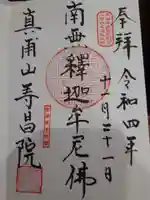 奉拝
令和四年
十月三十一日
南無釋迦牟尼佛
真甫山
寺昌院